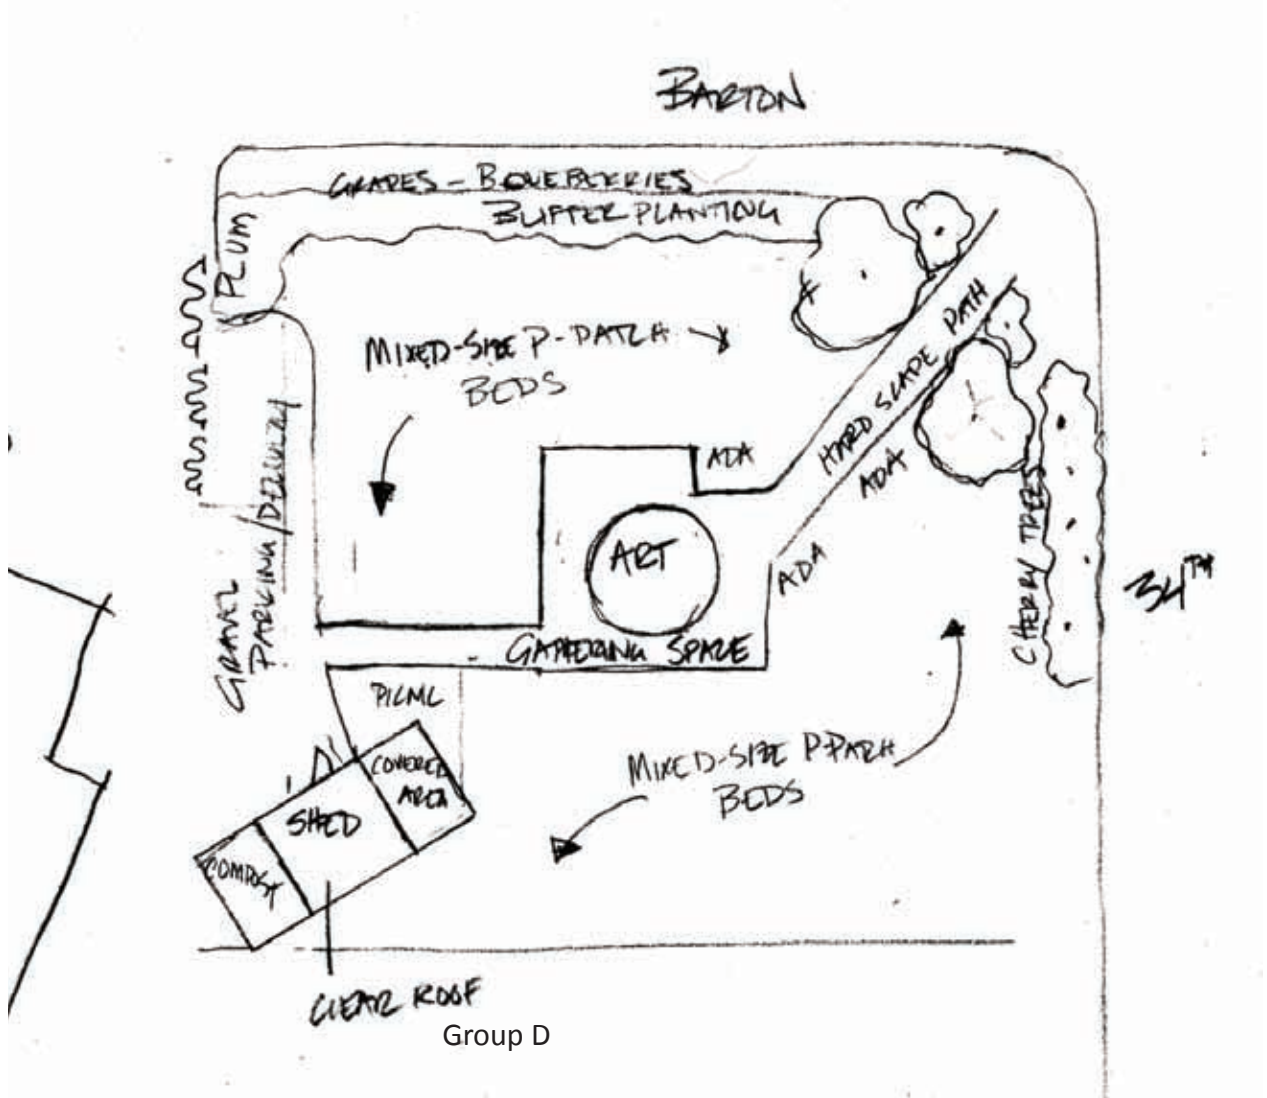 BARTON
GRAPES - BLUEBERRIES
BUFFER PLANTING
PLUM
MIXED-SIZE P-PATCH
BEDS
HARD SCAPE PATH
ADA
ADA
ADA
ART
GATHERING SPACE
GRAVEL
PARKING/DELIVERY
CHERRY TREES
34TH
PICNIC
COVERED
AREA
SHED
COMPOST
MIXED-SIZE P-PATCH
BEDS
CLEAR ROOF
Group D